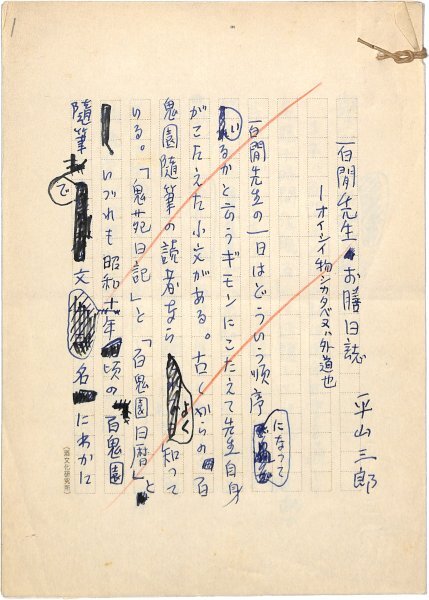 百閒先生お膳日誌
―オイシイ物シカタベヌハ外道也
平山三郎
百閒先生の一日はどういう順序になって
いるかと云うギモンにこたえて先生自身
がこたえた小文がある。古くからの百
鬼園随筆の読者ならよく知って
いる。「鬼苑日記」と「百鬼園日暦」と
いづれも昭和十年頃の百鬼園
随筆で文名にわかに
(酒文化研究所)
1